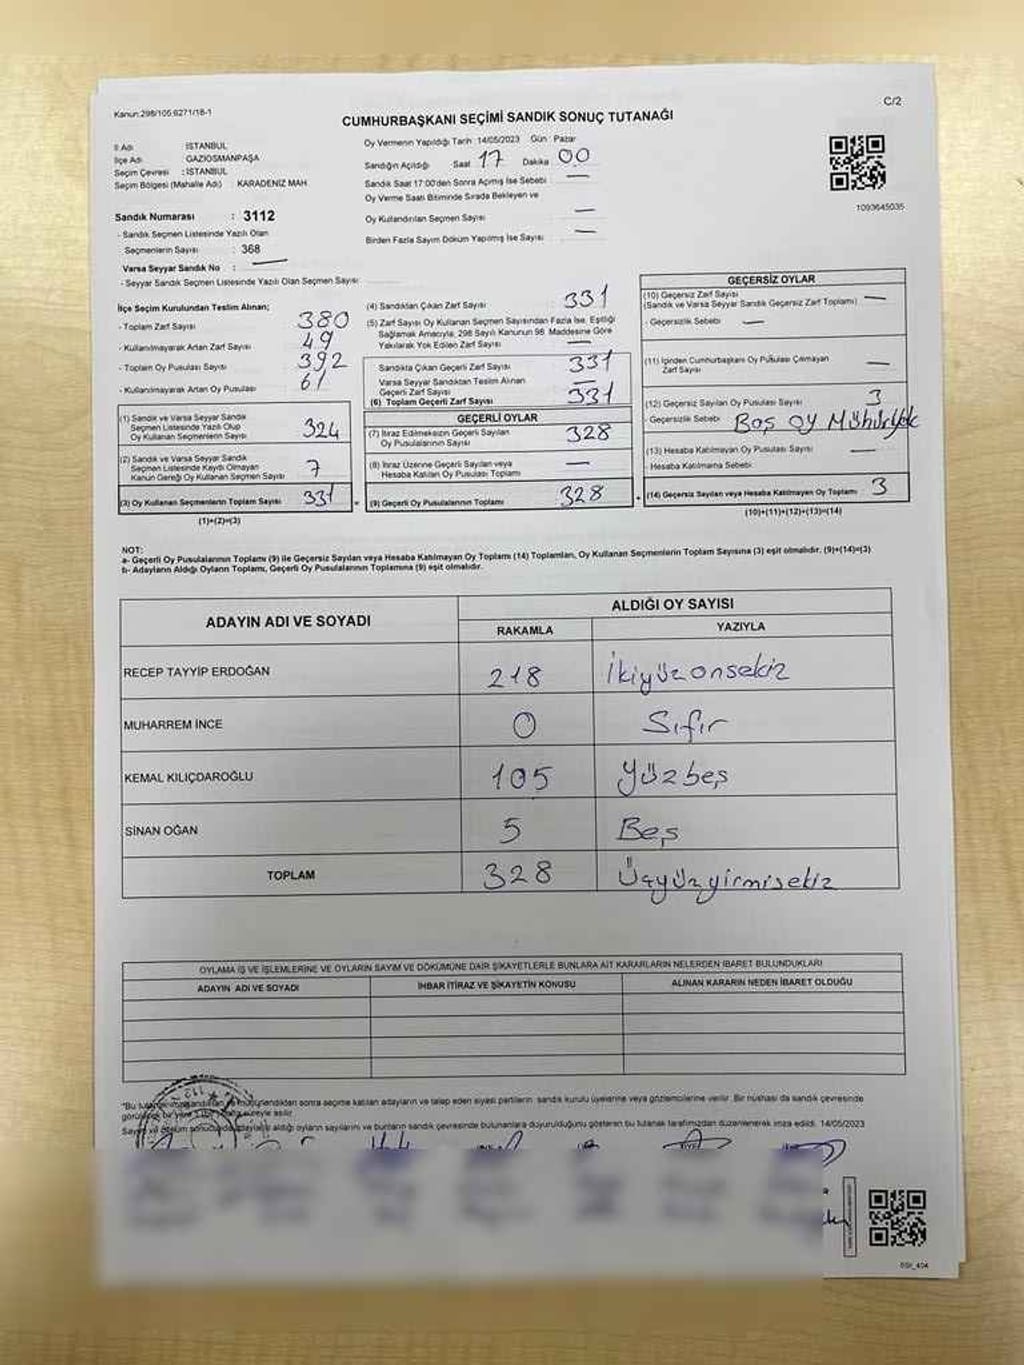 Kanun:298/105 6271/18-1
C/2
CUMHURBAŞKANI SEÇİMİ SANDIK SONUÇ TUTANAĞI
İl Adı : İSTANBUL
İlçe Adı : GAZİOSMANPAŞA
Seçim Çevresi : İSTANBUL
Seçim Bölgesi (Mahalle Adı) : KARADENİZ MAH
Sandık Numarası : 3112
- Sandık Seçmen Listesinde Yazılı Olan
Seçmenlerin Sayısı : 368
Varsa Seyyar Sandık No : —
- Seyyar Sandık Seçmen Listesinde Yazılı Olan Seçmen Sayısı
Oy Vermenin Yapıldığı Tarih :14/05/2023 Gün : Pazar
Sandığın Açıldığı Saat 17 Dakika 00
Sandık Saat 17:00'den Sonra Açılmış İse Sebebi : —
Oy Verme Saati Bitiminde Sırada Bekleyen ve
Oy Kullandırılan Seçmen Sayısı : —
Birden Fazla Sayım Döküm Yapılmış İse Sayısı : —
1093645035
İlçe Seçim Kurulundan Teslim Alınan;
- Toplam Zarf Sayısı : 380
- Kullanılmayarak Artan Zarf Sayısı : 49
- Toplam Oy Pusulası Sayısı : 392
- Kullanılmayarak Artan Oy Pusulası : 61
(1) Sandık ve Varsa Seyyar Sandık
Seçmen Listesinde Yazılı Olup
Oy Kullanan Seçmenlerin Sayısı : 324
(2) Sandık ve Varsa Seyyar Sandık
Seçmen Listesinde Kaydı Olmayan
Kanun Gereği Oy Kullanan Seçmen Sayısı : 7
(3) Oy Kullanan Seçmenlerin Toplam Sayısı : 331
(1)+(2)=(3)
(4) Sandıktan Çıkan Zarf Sayısı : 331
(5) Zarf Sayısı Oy Kullanan Seçmen Sayısından Fazla İse, Eşitliği
Sağlamak Amacıyla, 298 Sayılı Kanunun 98. Maddesine Göre
Yakılarak Yok Edilen Zarf Sayısı : —
Sandıkta Çıkan Geçerli Zarf Sayısı : 331
Varsa Seyyar Sandıktan Teslim Alınan
Geçerli Zarf Sayısı : —
(6) Toplam Geçerli Zarf Sayısı : 331
GEÇERLİ OYLAR
(7) İtiraz Edilmeksizin Geçerli Sayılan
Oy Pusulalarının Sayısı : 328
(8) İtiraz Üzerine Geçerli Sayılan veya
Hesaba Katılan Oy Pusulası Toplamı : —
(9) Geçerli Oy Pusulalarının Toplamı : 328
GEÇERSİZ OYLAR
(10) Geçersiz Zarf Sayısı
(Sandık ve Varsa Seyyar Sandık Geçersiz Zarf Toplamı) : —
- Geçersizlik Sebebi : —
(11) İçinden Cumhurbaşkanı Oy Pusulası Çıkmayan
Zarf Sayısı : —
(12) Geçersiz Sayılan Oy Pusulası Sayısı : 3
- Geçersizlik Sebebi : Boş oy Mühür Yok
(13) Hesaba Katılmayan Oy Pusulası Sayısı : —
- Hesaba Katılmama Sebebi :
(14) Geçersiz Sayılan veya Hesaba Katılmayan Oy Toplamı : 3
(10)+(11)+(12)+(13)=(14)
NOT:
a- Geçerli Oy Pusulalarının Toplamı (9) ile Geçersiz Sayılan veya Hesaba Katılmayan Oy Toplamı (14) Toplamları, Oy Kullanan Seçmenlerin Toplam Sayısına (3) eşit olmalıdır. (9)+(14)=(3)
b- Adayların Aldığı Oyların Toplamı, Geçerli Oy Pusulalarının Toplamına (9) eşit olmalıdır.
ADAYIN ADI VE SOYADI
ALDIĞI OY SAYISI
RAKAMLA YAZIYLA
RECEP TAYYİP ERDOĞAN 218 İkiyüzonsekiz
MUHARREM İNCE 0 Sıfır
KEMAL KILIÇDAROĞLU 105 Yüzbeş
SİNAN OĞAN 5 Beş
TOPLAM 328 Üçyüzyirmisekiz
OYLAMA İŞ VE İŞLEMLERİNE VE OYLARIN SAYIM VE DÖKÜMÜNE DAİR ŞİKAYETLERLE BUNLARA AİT KARARLARIN NELERDEN İBARET BULUNDUKLARI
ADAYIN ADI VE SOYADI İHBAR İTİRAZ VE ŞİKAYETİN KONUSU ALINAN KARARIN NEDEN İBARET OLDUĞU
sonra seçime katılan adayların ve talep eden siyasi partilerin sandık kurulu üyelerine veya gözlemcilerine verilir. Bir nüshası da sandık çevresinde
süreyle asılır
aldığı oyların sayılarını ve bunların sandık çevresinde bulunanlara duyurulduğunu gösteren bu tutanak tarafımızdan düzenlenerek imza edildi. 14/05/2023